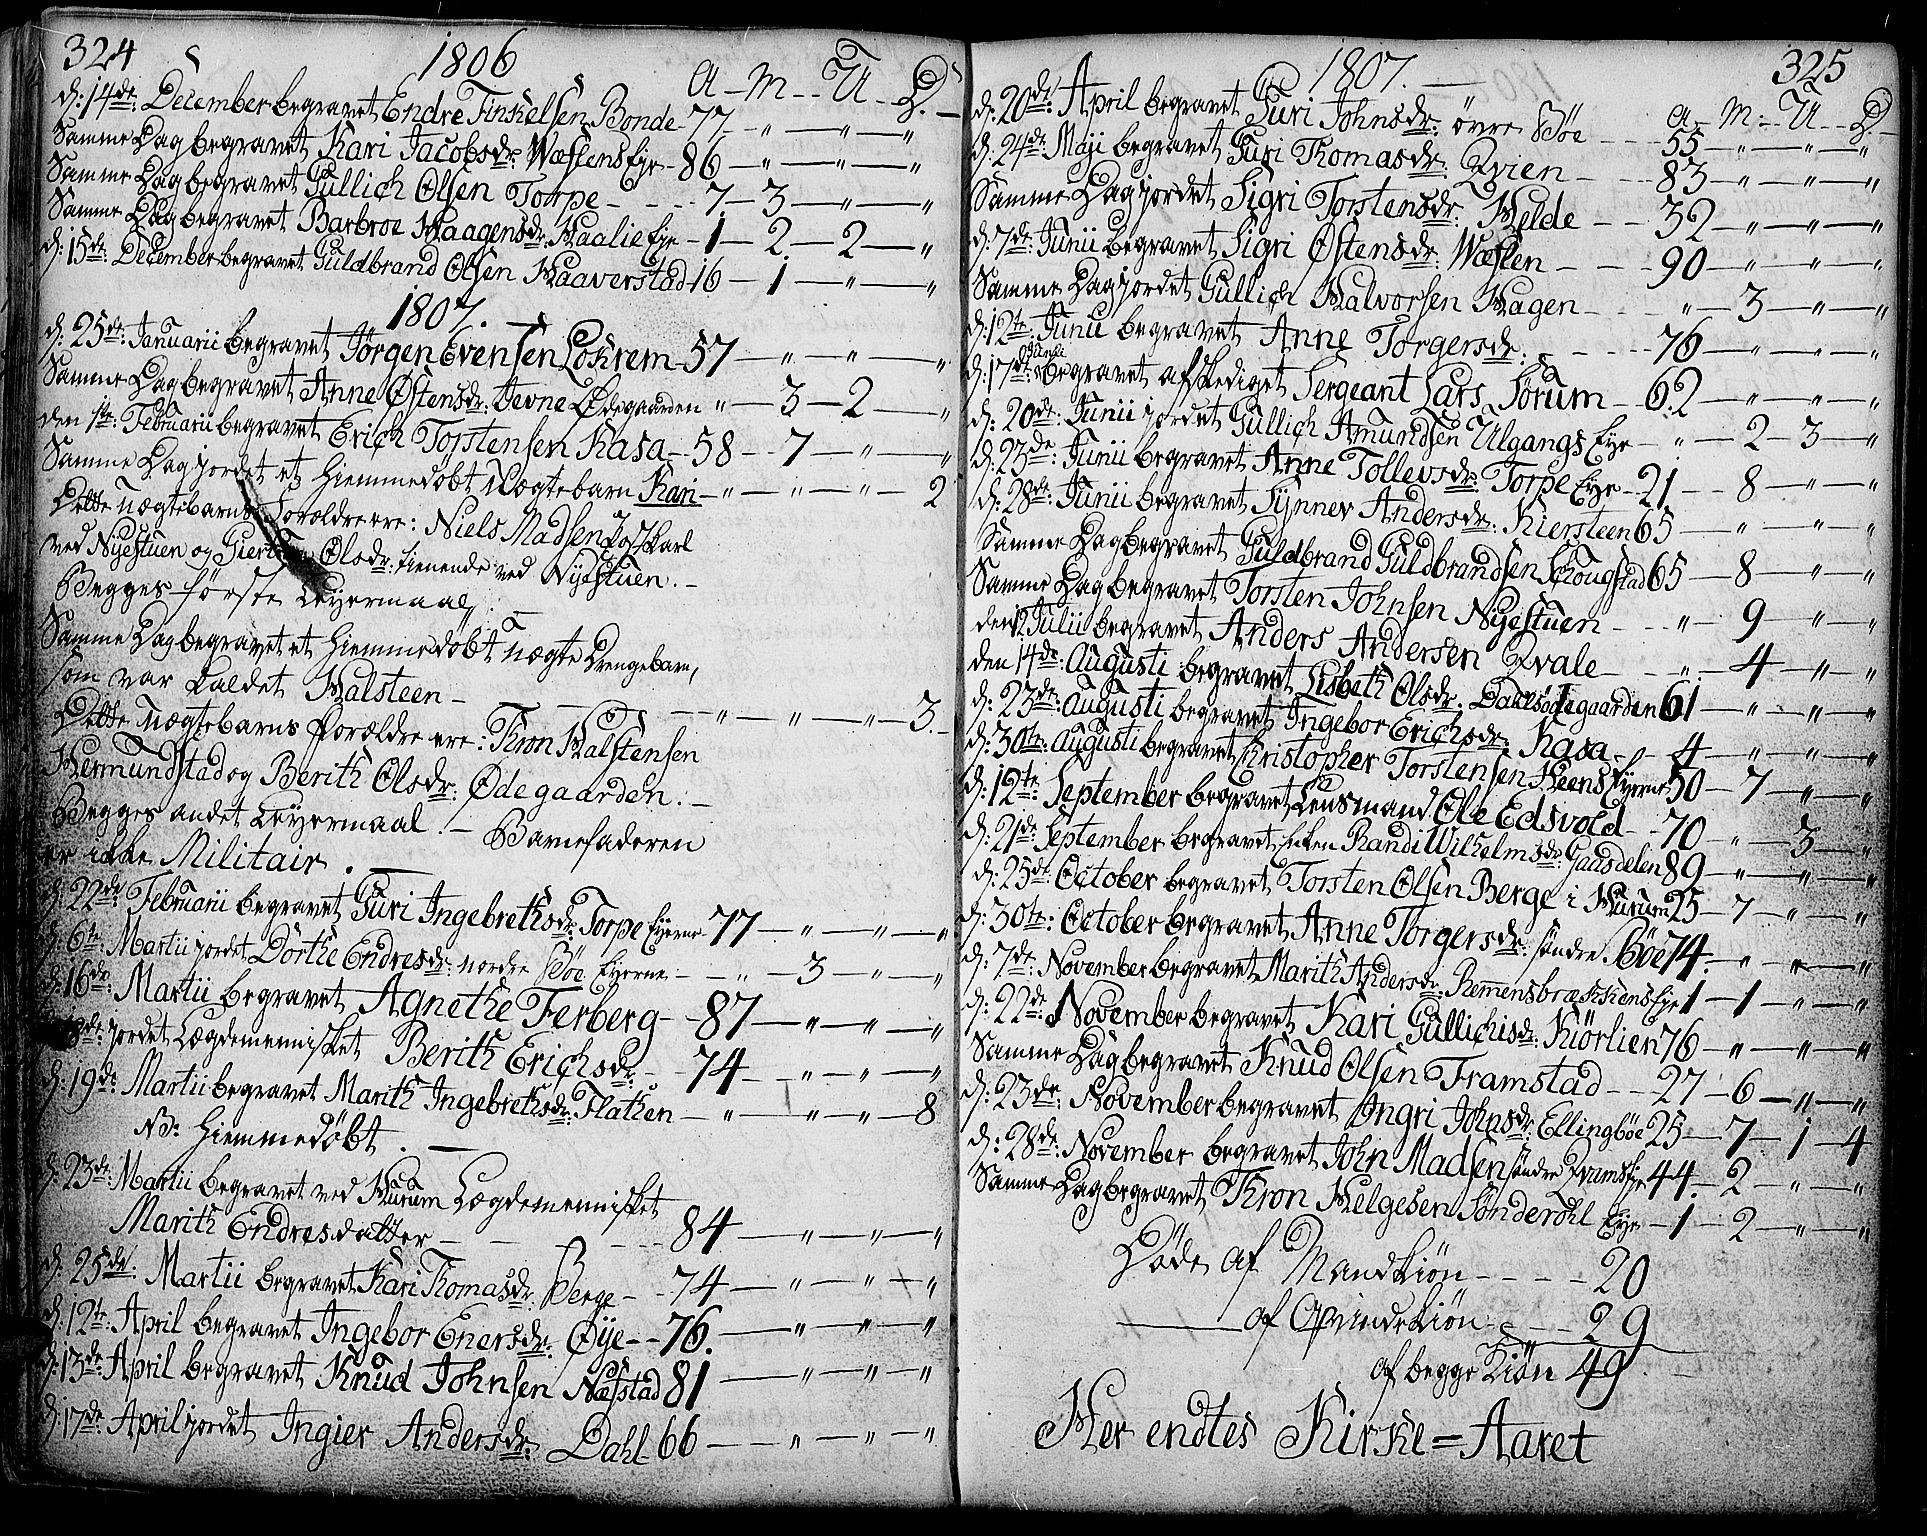 324
1806
A. — M. — U. — D.
d: 14de: December begravet Endre Finkelsen Bonde — 77. — " — " — "
Samme Dag begravet Kari Jacobsdr: Wæslens Eye — 86 — " — " — "
Samme Dag begravet Gullich Olsen Torpe — 7 — 3 — " — "
Samme Dag begravet Barbroe Haagensdr: Haalie Eye — 1 — 2 — 2 — "
d: 15de: December begravet Guldbrand Olsen Haaverstad 16 — 1 — " — "
1807.
d: 25de: Januarii begravet Jørgen Evensen Lokrem — 57 — " — " — "
Samme Dag begravet Anne Østensdr: Jevne Ødegaarden " — 3 — 2 — "
den 1te: Februarii begravet Erich Torstensen Kasa — 58 — 7 — " — "
Samme Dag jordet et hiemmedøbt Uægtebarn Kari — " — " — " — 2
Dette uægtebarns Forældre ere: Niels Madsen Postkarl
ved Nyestuen og Giertru Olsdr: tienende ved Nyestuen. —
Begges første Leyermaal. —
Samme Dag begravet et hiemmedøbt uægte Drengebarn,
som var kaldet Halsteen — " — " — " — 3. —
Dette uægtebarns Forældre ere: Thron Halstensen
Hermundstad og Berith Olsdr: Ødegaarden. —
Begges andet Leyermaal. — Barnefaderen
er ikke Militair. —
d: 22de Februarii begravet Guri Ingebrethsdr: Torpe Eyerne 77 — " — " — "
d: 6te: Martii jordet Dorthe Endresdr: nordre Bøe Eyerne — " — 3 — " — "
d: 16de: Martii begravet Agnethe Ferberg — 87 — " — " — "
18de: jordet Lægdemennisket Berith Erichsdr: — 74 — " — " — "
d: 19de: Martii begravet Marith Ingebrethsdr: Flathen — " — " — " — 8
NB: hiemmedøbt. —
d: 23de: Martii begravet ved Hurum Lægdemennisket
Marith Endresdatter — 84 — " — " — "
d: 25de: Martii begravet Kari Thomasdr: Berge — 74 — " — " — "
d: 12te: April begravet Ingebor Enersdr: Øye — 76. — " — " — "
d: 13de: April begravet Knud Johnsen Næsstad 81 — " — " — "
d: 17de: April jordet Ingier Andersdr: Dahl 66 — " — " — "
1807. —
325
A. — M. — U. — D.
d: 20de: April begravet Guri Johnsdr: øvre Bøe — 55 — " — " — "
d: 24de: Maji begravet Guri Thomasdr: Qvien — 83 — " — " — "
Samme Dag jordet Sigri Torstensdr: Helde — 32 — " — " — "
d: 7de: Junii begravet Sigri Østensdr: Wæslen — 90 — " — " — "
Samme Dag jordet Gullich Halvorsen Hagen — " — 3 — " — "
d: 12te: Junii begravet Anne Torgersdr: — 76 — " — " — "
d: 17de: Junii begravet afskediget Sergeant Lars Sørum — 62 — " — " — "
d: 20de: Junii jordet Gullich Amundsen Ulgangs Eye — " — 2 — 3 — "
d: 23de: Junii begravet Anne Tollevsdr: Torpe Eye — 21 — 8 — " — "
d: 28de: Junii begravet Synnev Andersdr: Kiersteen 65 — " — " — "
Samme Dag begravet Guldbrand Guldbrandsen Schougstad 65 — 8 — " — "
Samme Dag begravet Torsten Johnsen Nyestuen — " — 9 — " — "
den 12 Julii begravet Anders Andersen Qvale — " — 4 — " — "
den 14de: Augusti begravet Lisbeth Olsdr. Dahlsødegaarden 61 — " — " — "
d: 23de: Augusti begravet Ingebor Erichsdr: Kasa — 4 — " — " — "
d: 30te: Augusti begravet Christopher Torstensen Heens Eyerne 50 — 7 — " — "
d: 12te: September begravet Lensmand Ole Edsvold — 70 — " — 3 — "
d: 21de: September begravet Enken Randi Wilhelmsdr: Gausdelen 89 — " — " — "
d: 25de: October begravet Torsten Olsen Berge i Hurum 25 — 7 — " — "
d: 30te: October begravet Anne Torgersdr: søndre Bøe 74. — " — " — "
d: 7de: November begravet Marith Andersdr: Remensbrækkens Eye 1 — 1 — " — "
d: 22de: November begravet Kari Gullichsdr: Kiørlien 76 — " — " — "
Samme Dag begravet Knud Olsen Framstad — 27 — 6 — " — "
d: 23de: November begravet Ingri Johnsdr: Ellingbøe 25 — 7 — 1 — 4
d: 28de: November begravet John Madsen søndre Qvams Eye 44. — 2 — " — "
Samme Dag begravet Thron Helgesen Sønderohl Eye — 1 — 2 — " — "
Døde af Mandkiøn — 20
— af Qvindekiøn — 29
af begge Kiøn 49.
Her endtes Kirke=Aaret